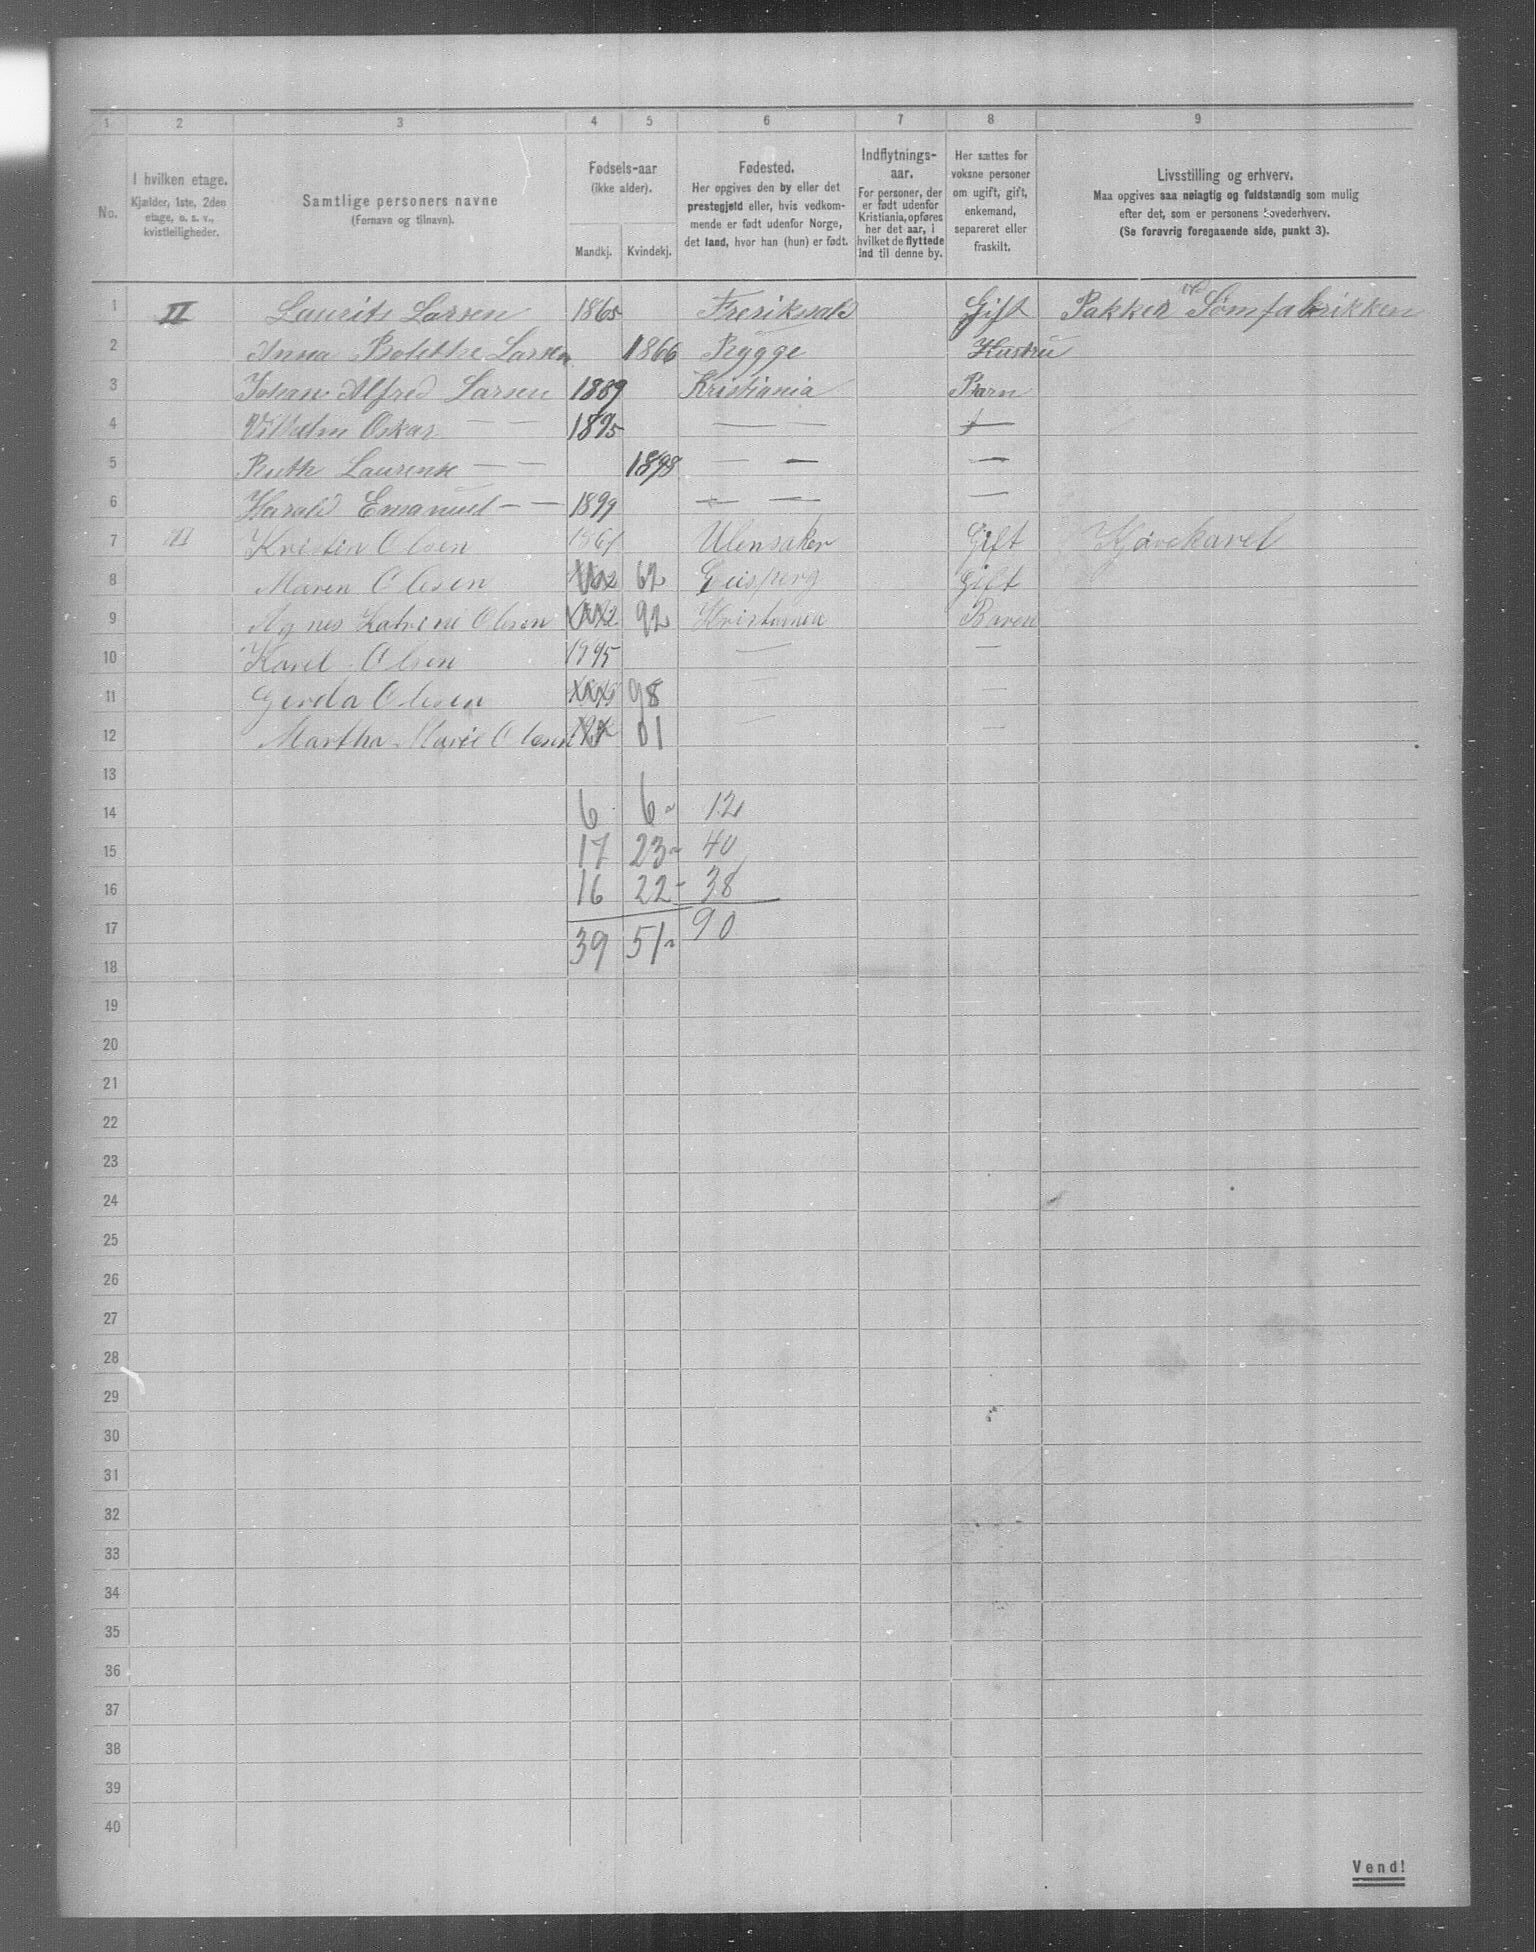 1 2 3 4 5 6 7 8 9
No.
I hvilken etage.
Kjælder, 1ste, 2den
etage, o. s. v.,
kvistleiligheder.
Samtlige personers navne
(Fornavn og tilnavn).
Fødsels-aar
(ikke alder).
Mandkj. Kvindekj.
Fødested.
Her opgives den by eller det
prestegjeld eller, hvis vedkom-
mende er født udenfor Norge,
det land, hvor han (hun) er født.
Indflytnings-
aar.
For personer, der
er født udenfor
Kristiania, opføres
her det aar, i
hvilket de flyttede
ind til denne by.
Her sættes for
voksne personer
om ugift, gift,
enkemand,
separeret eller
fraskilt.
Livsstilling og erhverv.
Maa opgives saa nøiagtig og fuldstændig som mulig
efter det, som er personens hovederhverv.
(Se forøvrig foregaaende side, punkt 3).
1 II Laurits Larsen 1865 Fresiksald Gift Pakker Sømfabrikken
2 Anna Bolethe Larsen 1866 Rygge Hustru
3 Johan Alfred Larsen 1889 Kristiania Barn
4 Vilhelm Oskar — — 1895 — — —
5 Ruth Laurense — — 1898 — — —
6 Harald Emanuel — — 1899 — — —
7 III Kristin Olsen 1861 Ulensaker Gift Kjørekarel
8 Maren Olesen 62 Gift
9 Agnes Katrine Olesen 92 Kristiania Baren
10 Karel Olsen 1895 — —
11 Gerda Olesen 98 — —
12 Martha Marie Olesen 01 — —
13
14 6 6 12
15 17 23 40
16 16 22 38
17 39 51 90
18
19
20
21
22
23
24
25
26
27
28
29
30
31
32
33
34
35
36
37
38
39
40
Vend!